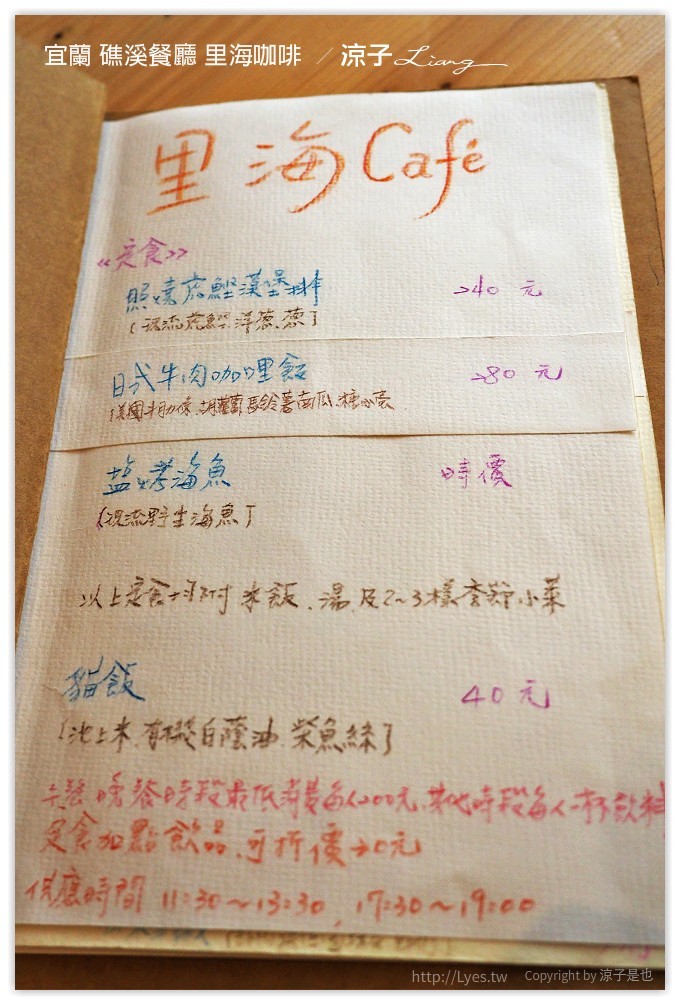 宜蘭 礁溪餐廳 里海咖啡 ／涼子 Liang
里海Café
《定食》
照燒鬼鰹漢堡排 240 元
(現流鬼鰹.洋蔥.蔥)
日式牛肉咖哩飯 280 元
(美國牛肋條.胡蘿蔔.馬鈴薯.南瓜.糖心蛋
盐烤海魚 時價
(現流野生海魚)
以上定食均附米飯.湯.及2~3樣季節小菜
貓飯 40 元
(池上米.有機白蔭油.柴魚絲)
午餐晚餐時段最低消費每人200元,其他時段每人一杯飲料
定食加點飲品.可折價20元
供應時間 11:30~13:30, 17:30~19:00
http://Lyes.tw Copyright by 涼子是也